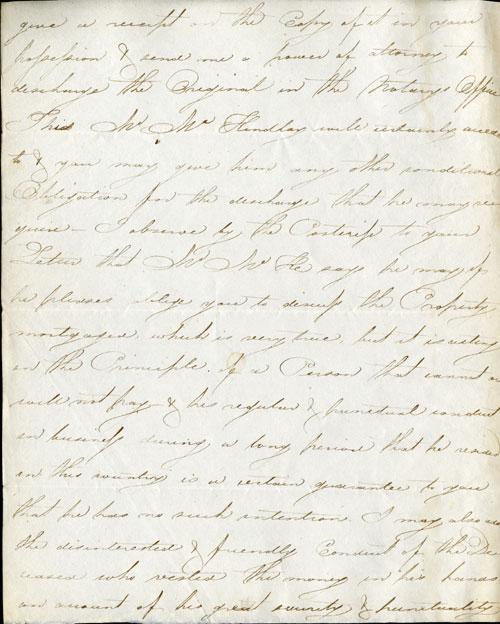 give a receipt on the Copy of it in your
possession & send me a Power of attorney to
discharge the Original in the Notarys Office
This Mr. Mc Kindlay will certainly accede
to & you may give him any other conditional
Obligation for the discharge that he may re
quire – I observe by the Postcrip to your
Letter that Mr. Mc Ke says he may if
he pleases oblige you to discuss the Property
mortgaged, which is very true, but it is acting
on the Principle of a Person that cannot or
will not pay & his regular & punctual conduct
in business during a long period that he resided
in this country is a certain guarantee to you
that he has no such intention. I may also
the disinterested & friendly Conduct of the De
ceased who vested the money in his hands
on account of his great security & punctuality